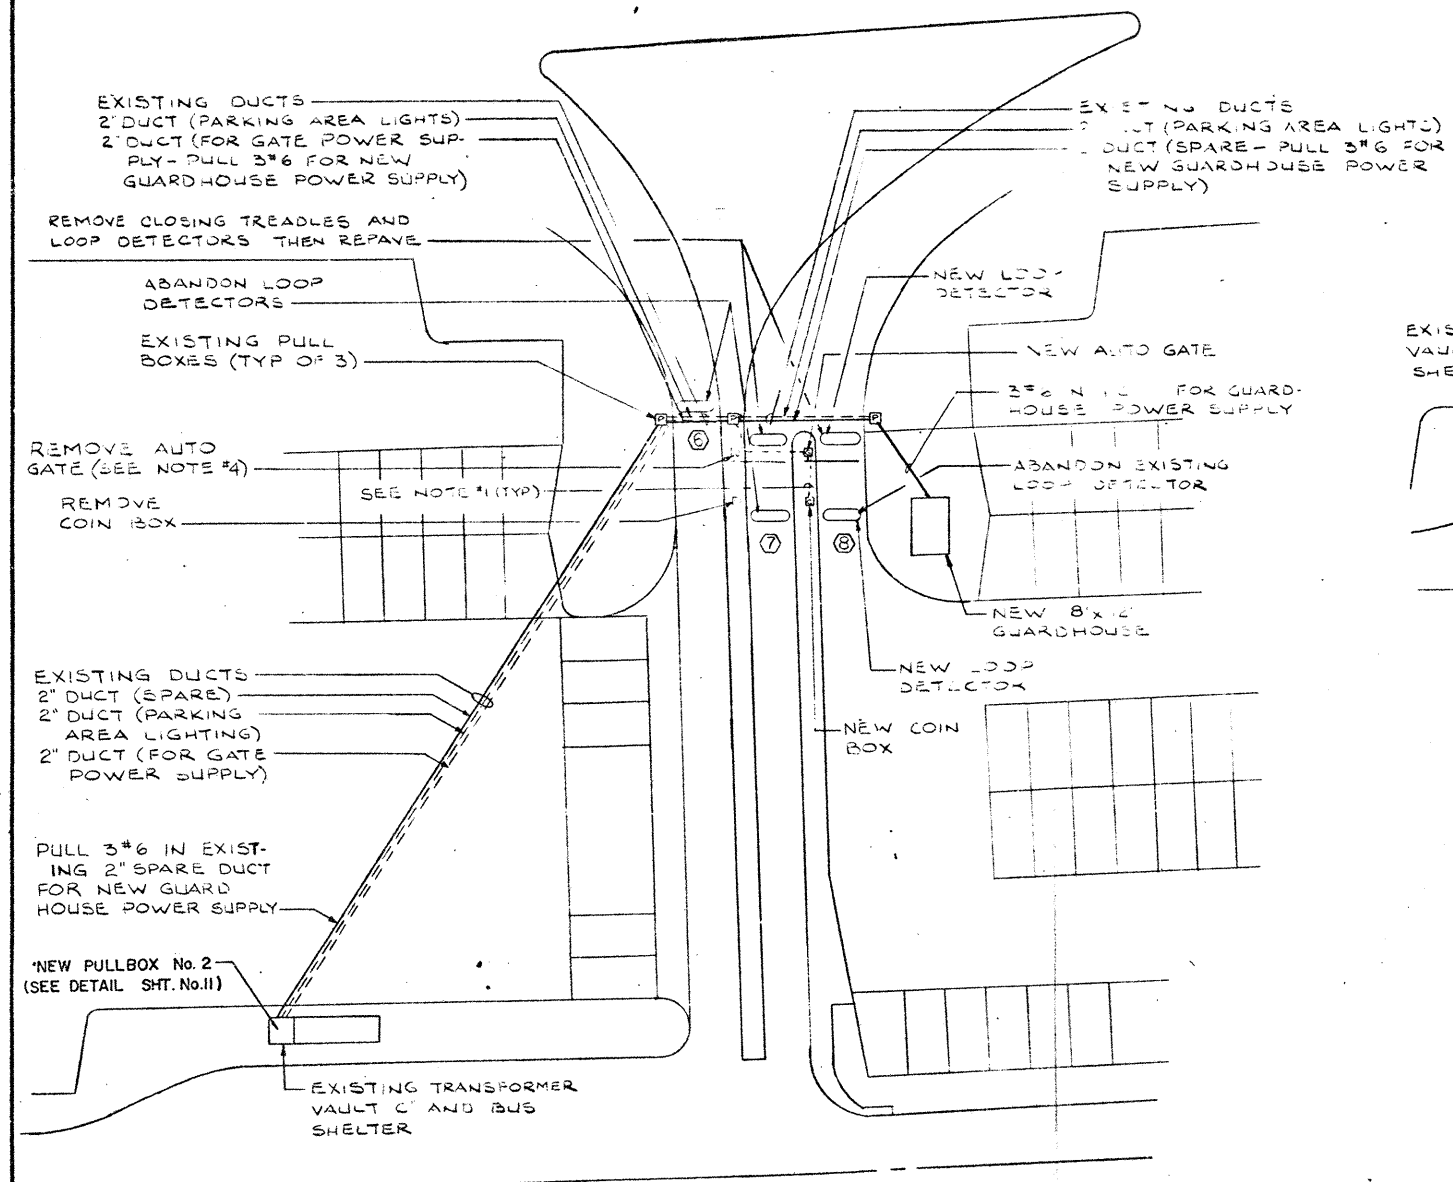 EXISTING DUCTS
2" DUCT (PARKING AREA LIGHTS)
2" DUCT (FOR GATE POWER SUP-
PLY - PULL 3#6 FOR NEW
GUARDHOUSE POWER SUPPLY)
REMOVE CLOSING TREADLES AND
LOOP DETECTORS THEN REPAVE
ABANDON LOOP
DETECTORS
EXISTING PULL
BOXES (TYP OF 3)
REMOVE AUTO
GATE (SEE NOTE #4)
SEE NOTE #1 (TYP)
REMOVE
COIN BOX
EXISTING DUCTS
2" DUCT (SPARE)
2" DUCT (PARKING
AREA LIGHTING)
2" DUCT (FOR GATE
POWER SUPPLY)
PULL 3#6 IN EXIST-
ING 2" SPARE DUCT
FOR NEW GUARD
HOUSE POWER SUPPLY
NEW PULLBOX No. 2
(SEE DETAIL SHT. No. 11)
EXISTING TRANSFORMER
VAULT C" AND BUS
SHELTER
P
P
P
6
7
8
DUCTS
(PARKING AREA LIGHTS)
DUCT (SPARE - PULL 3#6 FOR
NEW GUARDHOUSE POWER
SUPPLY)
NEW
DETECTOR
NEW AUTO GATE
3#6 FOR GUARD-
HOUSE POWER SUPPLY
ABANDON EXISTING
LOOP DETECTOR
NEW 8'x12'
GUARDHOUSE
NEW LOOP
DETECTOR
NEW COIN
BOX
EXIS
VAU
SHE